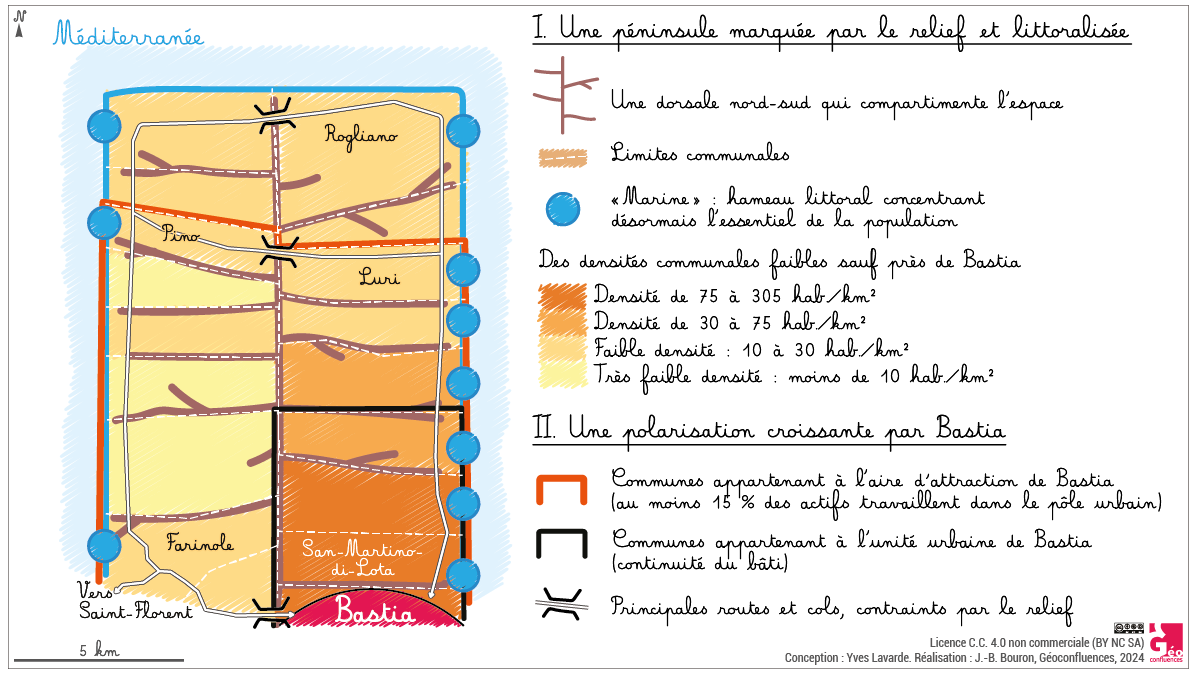 N
Méditerranée
Rogliano
Pino
Luri
Farinole
San-Martino-
di-Lota
Vers
Saint-Florent
Bastia
5 km
I. Une péninsule marquée par le relief et littoralisée
Une dorsale nord-sud qui compartimente l'espace
Limites communales
« Marine » : hameau littoral concentrant
désormais l'essentiel de la population
Des densités communales faibles sauf près de Bastia
Densité de 75 à 305 hab/km²
Densité de 30 à 75 hab/km²
Faible densité : 10 à 30 hab/km²
Très faible densité : moins de 10 hab/km²
II. Une polarisation croissante par Bastia
Communes appartenant à l'aire d'attraction de Bastia
(au moins 15 % des actifs travaillent dans le pôle urbain)
Communes appartenant à l'unité urbaine de Bastia
(continuité du bâti)
Principales routes et cols, contraints par le relief
Licence C.C. 4.0 non commerciale (BY NC SA)
Conception : Yves Lavarde. Réalisation : J.-B. Bouron, Géoconfluences, 2024
Géo
confluences